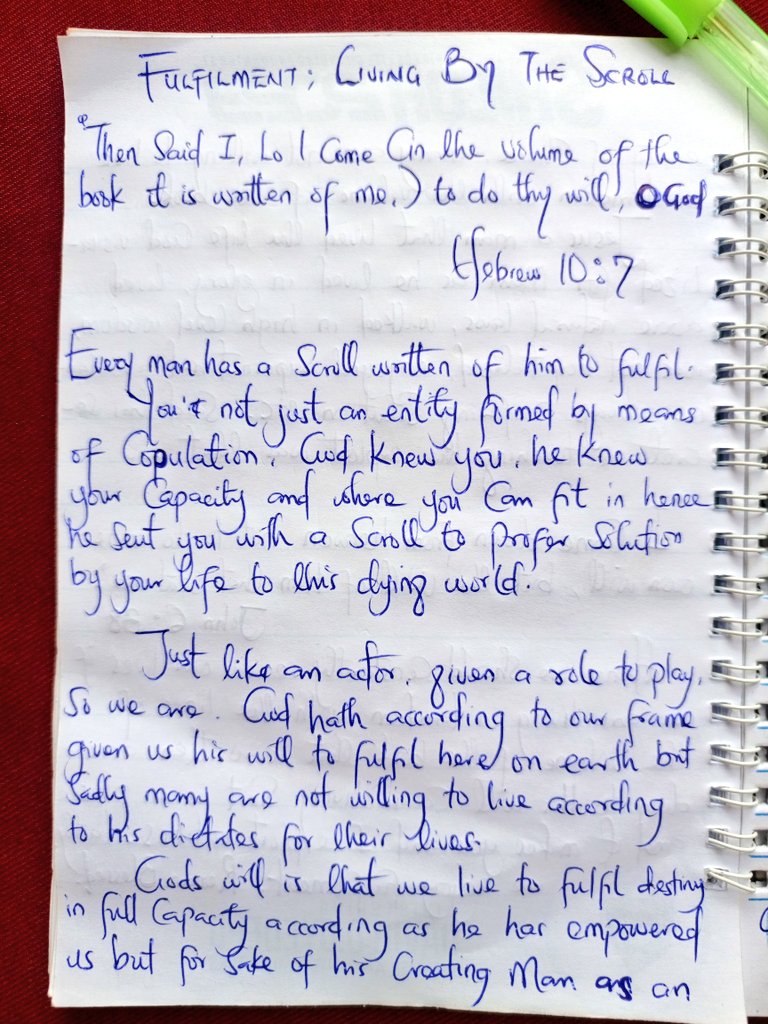 FULFILMENT; LIVING BY THE SCROLL
"Then Said I, Lo I Come (in the volume of the
book it is written of me.) to do thy will, O God
Hebrew 10:7
Every man has a Scroll written of him to fulfil.
You're not just an entity formed by means
of Copulation. God knew you, he knew
your Capacity and where you can fit in hence
he sent you with a Scroll to profer Solution
by your life to this dying world.
Just like an actor, given a role to play,
So we are. God hath according to our frame
given us his will to fulfil here on earth but
Sadly many are not willing to live according
to his dictates for their lives.
Gods will is that we live to fulfil destiny
in full Capacity according as he has empowered
us but for Sake of his Creating Man as an